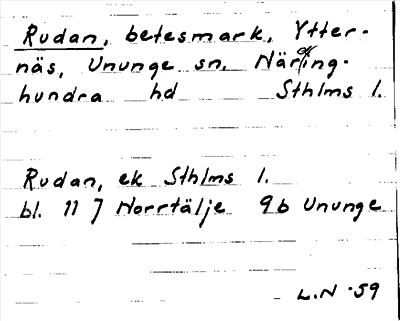 Rudan, betesmark, Ytter-
näs, Ununge sn, Näring-
hundra hd Sthlms l.
Rudan, ek Sthlms l.
bl. 11 J Norrtälje 9b Ununge
L.N -59